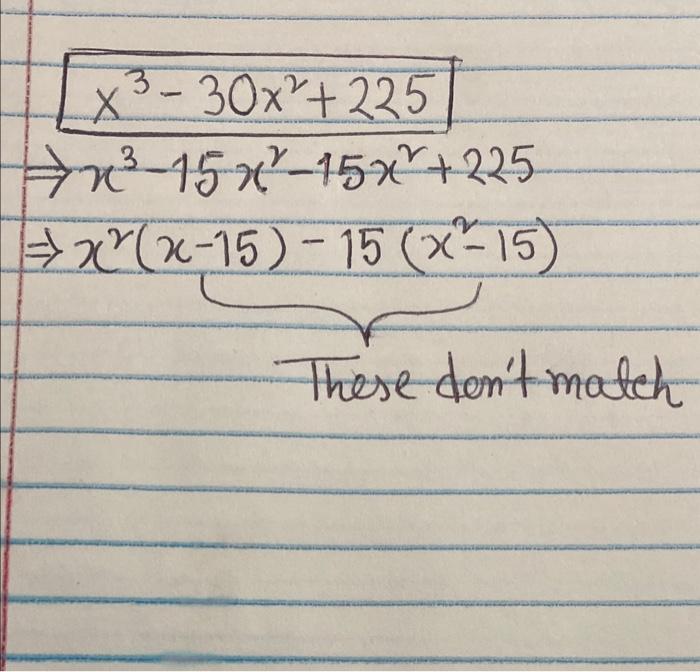 x³ - 30x² + 225
⇒ x³ - 15x² - 15x² + 225
⇒ x²(x - 15) - 15(x² - 15)
These don't match